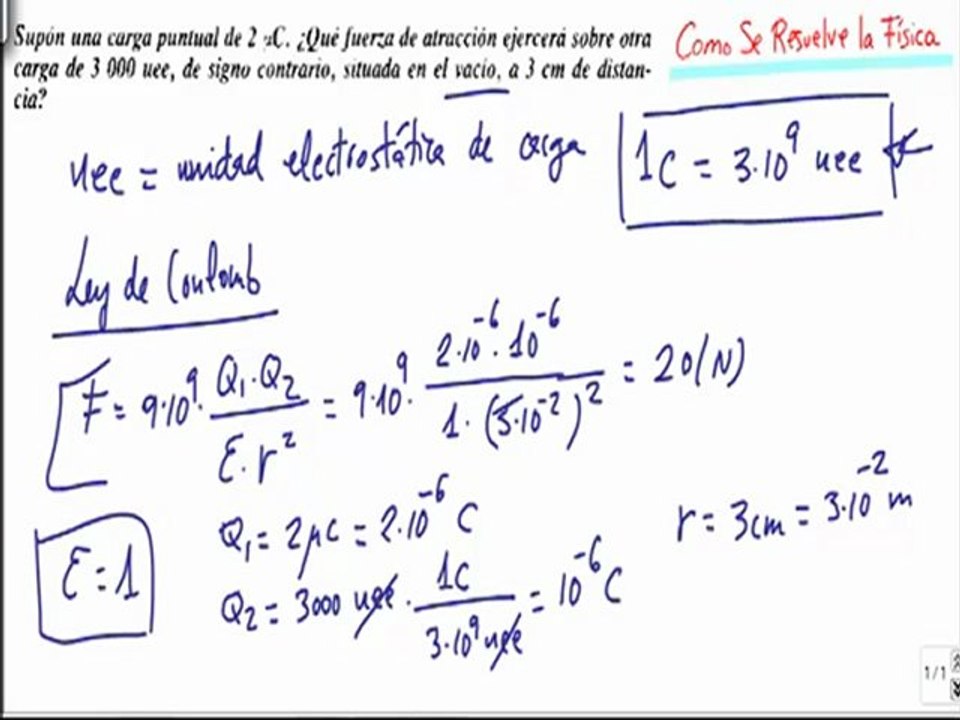 Supón una carga puntual de 2 μC. ¿Qué fuerza de atracción ejercerá sobre otra
carga de 3 000 uee, de signo contrario, situada en el vacío, a 3 cm de distan-
cia?
Como Se Resuelve la Física
uee = unidad electrostática de carga
1C = 3·10⁹ uee
Ley de Coulomb
F = 9·10⁹· Q₁·Q₂ / ε·r² = 9·10⁹· 2·10⁻⁶·10⁻⁶ / 1·(3·10⁻²)² = 20(N)
ε = 1
Q₁ = 2μC = 2·10⁻⁶ C
r = 3cm = 3·10⁻² m
Q₂ = 3000 uee · 1C / 3·10⁹ uee = 10⁻⁶ C
1/1